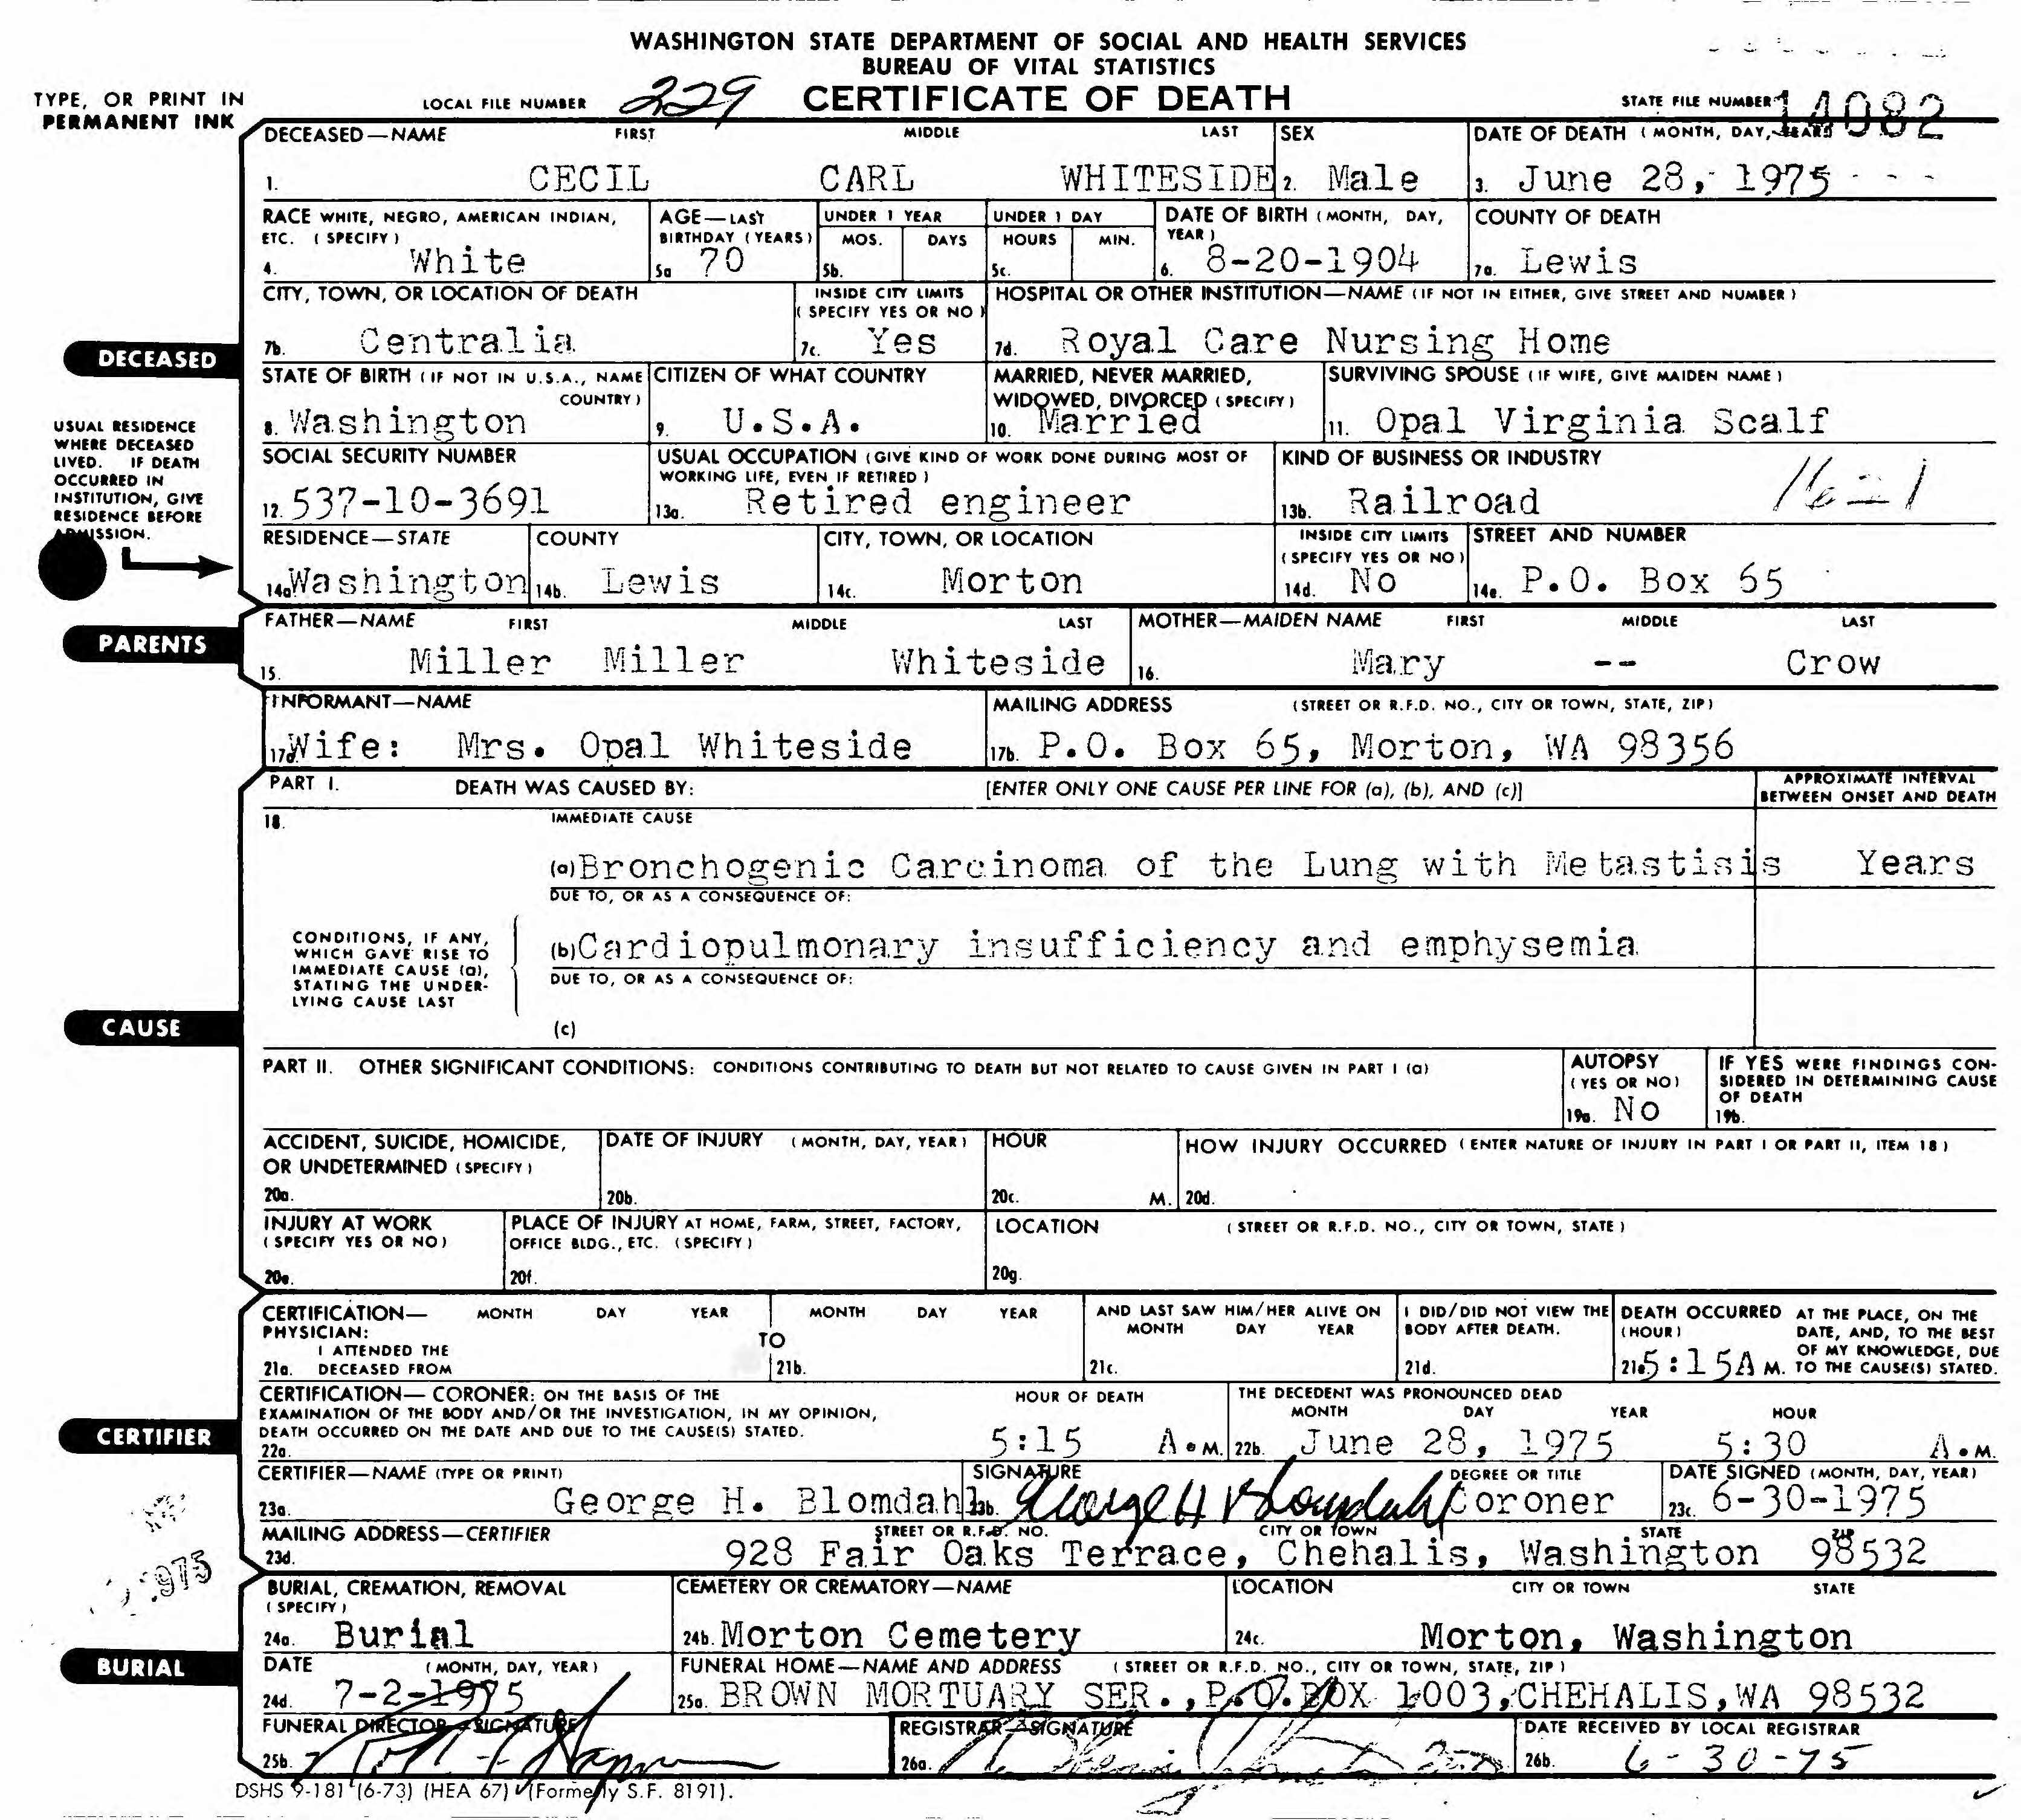 WASHINGTON STATE DEPARTMENT OF SOCIAL AND HEALTH SERVICES
BUREAU OF VITAL STATISTICS
TYPE, OR PRINT IN
PERMANENT INK
LOCAL FILE NUMBER 229 CERTIFICATE OF DEATH STATE FILE NUMBER 14082
DECEASED—NAME FIRST MIDDLE LAST SEX DATE OF DEATH (MONTH, DAY, YEAR)
1. CECIL CARL WHITESIDE 2. Male 3. June 28, 1975
RACE WHITE, NEGRO, AMERICAN INDIAN, AGE—LAST UNDER 1 YEAR UNDER 1 DAY DATE OF BIRTH (MONTH, DAY, COUNTY OF DEATH
ETC. (SPECIFY) BIRTHDAY (YEARS) MOS. DAYS HOURS MIN. YEAR)
4. White 5a 70 5b. 5c. 6. 8-20-1904 7a. Lewis
CITY, TOWN, OR LOCATION OF DEATH INSIDE CITY LIMITS HOSPITAL OR OTHER INSTITUTION—NAME (IF NOT IN EITHER, GIVE STREET AND NUMBER)
(SPECIFY YES OR NO)
7b. Centralia 7c. Yes 7d. Royal Care Nursing Home
DECEASED
STATE OF BIRTH (IF NOT IN U.S.A., NAME CITIZEN OF WHAT COUNTRY MARRIED, NEVER MARRIED, SURVIVING SPOUSE (IF WIFE, GIVE MAIDEN NAME)
COUNTRY) WIDOWED, DIVORCED (SPECIFY)
8. Washington 9. U.S.A. 10. Married 11. Opal Virginia Scalf
USUAL RESIDENCE
WHERE DECEASED
LIVED. IF DEATH
OCCURRED IN
INSTITUTION, GIVE
RESIDENCE BEFORE
ADMISSION.
SOCIAL SECURITY NUMBER USUAL OCCUPATION (GIVE KIND OF WORK DONE DURING MOST OF KIND OF BUSINESS OR INDUSTRY
WORKING LIFE, EVEN IF RETIRED)
12. 537-10-3691 13a. Retired engineer 13b. Railroad 16-21
RESIDENCE—STATE COUNTY CITY, TOWN, OR LOCATION INSIDE CITY LIMITS STREET AND NUMBER
(SPECIFY YES OR NO)
14a. Washington 14b. Lewis 14c. Morton 14d. No 14e. P.O. Box 65
PARENTS
FATHER—NAME FIRST MIDDLE LAST MOTHER—MAIDEN NAME FIRST MIDDLE LAST
15. Miller Miller Whiteside 16. Mary -- Crow
INFORMANT—NAME MAILING ADDRESS (STREET OR R.F.D. NO., CITY OR TOWN, STATE, ZIP)
17a. Wife: Mrs. Opal Whiteside 17b. P.O. Box 65, Morton, WA 98356
PART I. DEATH WAS CAUSED BY: [ENTER ONLY ONE CAUSE PER LINE FOR (a), (b), AND (c)] APPROXIMATE INTERVAL
BETWEEN ONSET AND DEATH
18. IMMEDIATE CAUSE
(a) Bronchogenic Carcinoma of the Lung with Metastisis Years
DUE TO, OR AS A CONSEQUENCE OF:
CONDITIONS, IF ANY,
WHICH GAVE RISE TO
IMMEDIATE CAUSE (a),
STATING THE UNDER-
LYING CAUSE LAST
(b) Cardiopulmonary insufficiency and emphysemia
DUE TO, OR AS A CONSEQUENCE OF:
CAUSE
(c)
PART II. OTHER SIGNIFICANT CONDITIONS: CONDITIONS CONTRIBUTING TO DEATH BUT NOT RELATED TO CAUSE GIVEN IN PART I (a) AUTOPSY IF YES WERE FINDINGS CON-
(YES OR NO) SIDERED IN DETERMINING CAUSE
OF DEATH
19a. No 19b.
ACCIDENT, SUICIDE, HOMICIDE, DATE OF INJURY (MONTH, DAY, YEAR) HOUR HOW INJURY OCCURRED (ENTER NATURE OF INJURY IN PART I OR PART II, ITEM 18)
OR UNDETERMINED (SPECIFY)
20a. 20b. 20c. M. 20d.
INJURY AT WORK PLACE OF INJURY AT HOME, FARM, STREET, FACTORY, LOCATION (STREET OR R.F.D. NO., CITY OR TOWN, STATE)
(SPECIFY YES OR NO) OFFICE BLDG., ETC. (SPECIFY)
20e. 20f. 20g.
CERTIFICATION— MONTH DAY YEAR MONTH DAY YEAR AND LAST SAW HIM/HER ALIVE ON I DID/DID NOT VIEW THE DEATH OCCURRED AT THE PLACE, ON THE
PHYSICIAN: TO MONTH DAY YEAR BODY AFTER DEATH. (HOUR) DATE, AND, TO THE BEST
I ATTENDED THE OF MY KNOWLEDGE, DUE
21a. DECEASED FROM 21b. 21c. 21d. 21e. 5:15A M. TO THE CAUSE(S) STATED.
CERTIFICATION— CORONER: ON THE BASIS OF THE HOUR OF DEATH THE DECEDENT WAS PRONOUNCED DEAD
EXAMINATION OF THE BODY AND/OR THE INVESTIGATION, IN MY OPINION, MONTH DAY YEAR HOUR
DEATH OCCURRED ON THE DATE AND DUE TO THE CAUSE(S) STATED.
22a. 5:15 A.M. 22b. June 28, 1975 5:30 A.M.
CERTIFIER
CERTIFIER—NAME (TYPE OR PRINT) SIGNATURE DEGREE OR TITLE DATE SIGNED (MONTH, DAY, YEAR)
23a. George H. Blomdahl 23b. George H Blomdahl Coroner 23c. 6-30-1975
MAILING ADDRESS—CERTIFIER STREET OR R.F.D. NO. CITY OR TOWN STATE ZIP
23d. 928 Fair Oaks Terrace, Chehalis, Washington 98532
1975
BURIAL, CREMATION, REMOVAL CEMETERY OR CREMATORY—NAME LOCATION CITY OR TOWN STATE
(SPECIFY)
24a. Burial 24b. Morton Cemetery 24c. Morton, Washington
BURIAL
DATE (MONTH, DAY, YEAR) FUNERAL HOME—NAME AND ADDRESS (STREET OR R.F.D. NO., CITY OR TOWN, STATE, ZIP)
24d. 7-2-1975 25a. BROWN MORTUARY SER., P.O.BOX 1003, CHEHALIS, WA 98532
FUNERAL DIRECTOR—SIGNATURE REGISTRAR—SIGNATURE DATE RECEIVED BY LOCAL REGISTRAR
25b. 26a. 26b. 6-30-75
DSHS 9-181 (6-73) (HEA 67) (Formerly S.F. 8191).